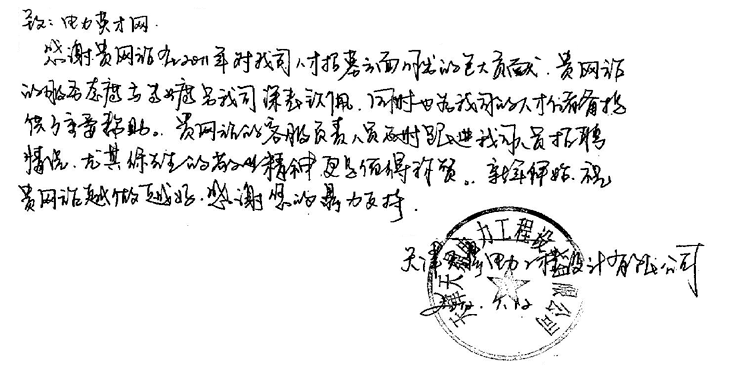 致：电力英才网.
感谢贵网站在2011年对我司人才招募方面所出的巨大贡献,贵网站
的服务态度与专业度另我司深表钦佩,同时也为我司的人才储备提
供了主要帮助。贵网站的客服负责人员及时跟进我司人员招聘
情况,尤其 先生的敬业精神更是值得称赞。新年伊始,祝
贵网站越做越好,感谢您的鼎力支持.
天津 电力工程设计有限公司